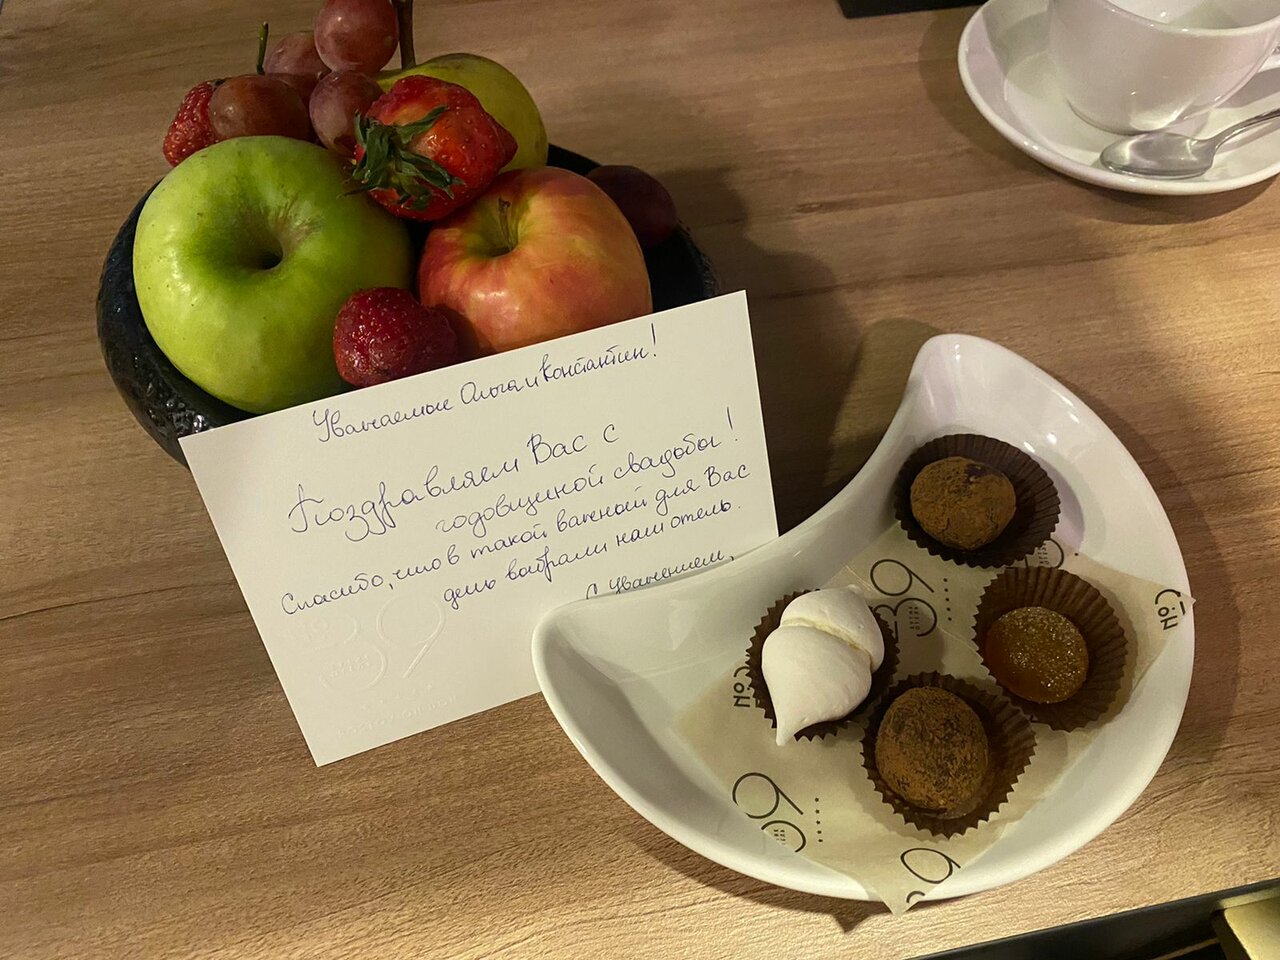 Уважаемые Ольга и Константин!
Поздравляем Вас с
годовщиной свадьбы!
Спасибо, что в такой важный для Вас
день выбрали наш отель.
С Уважением,
39
39
39
39